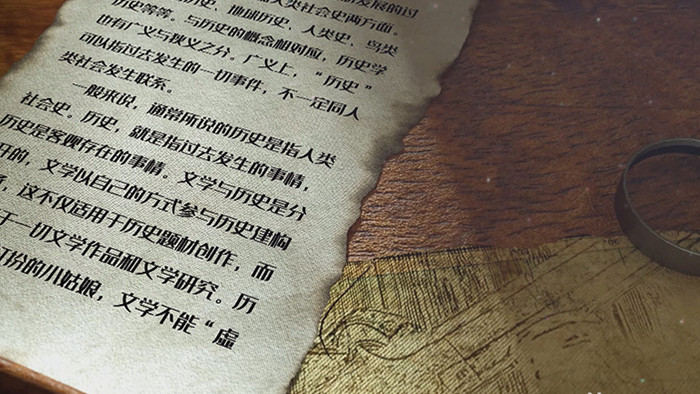 发展的过
人类社会史两方面。
历史、地球历史、人类史、鸟类
历史等等。与历史的概念相对应，历史学
也有广义与狭义之分。广义上，“历史”
可以指过去发生的一切事件，不一定同人
类社会发生联系。
一般来说，通常所说的历史是指人类
社会史。历史，就是指过去发生的事情，
历史是客观存在的事情，文学与历史是分
开的，文学以自己的方式参与历史建构
，这不仅适用于历史题材创作，而
于一切文学作品和文学研究。历
扮的小姑娘，文学不能“虚